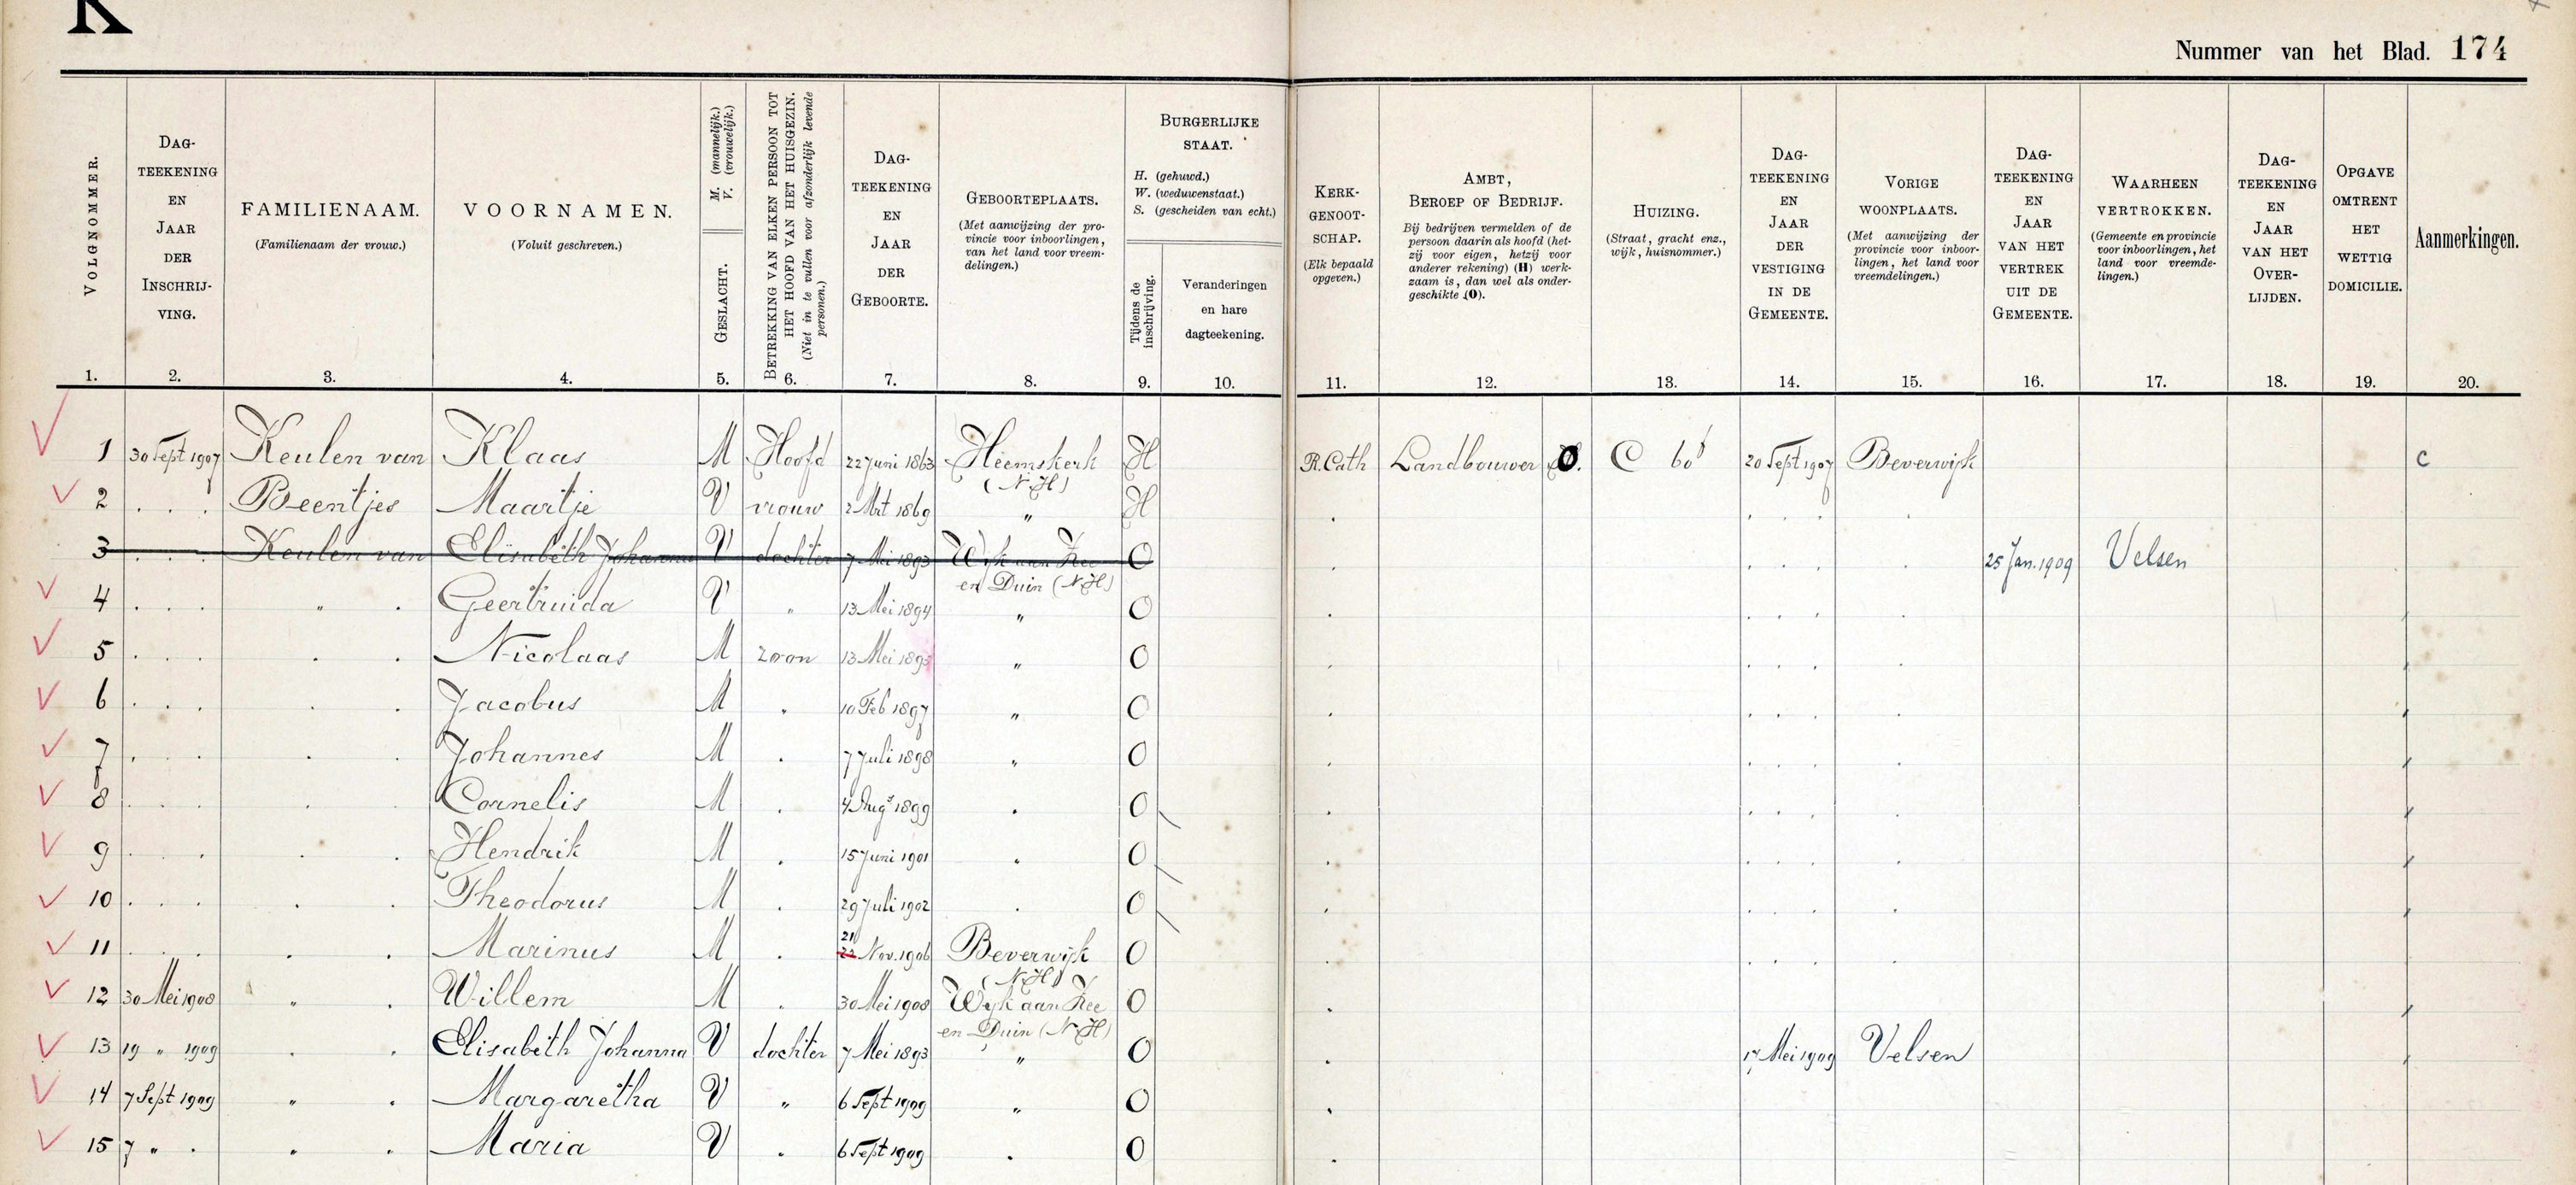 K
Nummer van het Blad. 174
VOLGNOMMER.
DAG-
TEEKENING
EN
JAAR
DER
INSCHRIJ-
VING.
FAMILIENAAM.
(Familienaam der vrouw.)
VOORNAMEN.
(Voluit geschreven.)
M. (mannelijk.)
V. (vrouwelijk.)
GESLACHT.
BETREKKING VAN ELKEN PERSOON TOT
HET HOOFD VAN HET HUISGEZIN.
(Niet in te vullen voor afzonderlijk levende
personen.)
DAG-
TEEKENING
EN
JAAR
DER
GEBOORTE.
GEBOORTEPLAATS.
(Met aanwijzing der pro-
vincie voor inboorlingen,
van het land voor vreem-
delingen.)
BURGERLIJKE
STAAT.
H. (gehuwd.)
W. (weduwenstaat.)
S. (gescheiden van echt.)
Tijdens de
inschrijving.
Veranderingen
en hare
dagteekening.
KERK-
GENOOT-
SCHAP.
(Elk bepaald
opgeven.)
AMBT,
BEROEP OF BEDRIJF.
Bij bedrijven vermelden of de
persoon daarin als hoofd (het-
zij voor eigen, hetzij voor
anderer rekening) (H) werk-
zaam is, dan wel als onder-
geschikte (O).
HUIZING.
(Straat, gracht enz.,
wijk, huisnommer.)
DAG-
TEEKENING
EN
JAAR
DER
VESTIGING
IN DE
GEMEENTE.
VORIGE
WOONPLAATS.
(Met aanwijzing der
provincie voor inboor-
lingen, het land voor
vreemdelingen.)
DAG-
TEEKENING
EN
JAAR
VAN HET
VERTREK
UIT DE
GEMEENTE.
WAARHEEN
VERTROKKEN.
(Gemeente en provincie
voor inboorlingen, het
land voor vreemde-
lingen.)
DAG-
TEEKENING
EN
JAAR
VAN HET
OVER-
LIJDEN.
OPGAVE
OMTRENT
HET
WETTIG
DOMICILIE.
Aanmerkingen.
1. 2. 3. 4. 5. 6. 7. 8. 9. 10. 11. 12. 13. 14. 15. 16. 17. 18. 19. 20.
1 30 Sept 1907 Keulen van Klaas M Hoofd 22 Juni 1863 Heemskerk H R. Cath Landbouwer O. C 60 20 Sept 1907 Beverwijk c
(N.H)
2 . . . Beentjes Maartje V vrouw 2 Mrt 1869 " H
3 . . . Keulen van Elisabeth Johanna V dochter 7 Mei 1893 Wijk aan Zee O 25 Jan. 1909 Velsen
en Duin (N.H)
4 . . . " . Geertruida V " 13 Mei 1894 " O
5 . . . . . Nicolaas M zoon 13 Mei 1895 " O
6 . . . . . Jacobus M " 10 Feb 1897 " O
7 . . . . . Johannes M . 7 Juli 1898 " O
8 . . . . . Cornelis M . 4 Augs 1899 . O
9 . . . . . Hendrik M . 15 Juni 1901 . O
10 . . . . . Theodorus M . 29 Juli 1902 . O
21
11 . . . . . Marinus M . 22 Nov. 1906 Beverwijk O
(N.H)
12 30 Mei 1908 " . Willem M . 30 Mei 1908 Wijk aan Zee O
en Duin (N.H)
13 19 " 1909 . . Elisabeth Johanna V dochter 7 Mei 1893 " O 17 Mei 1909 Velsen
14 7 Sept 1909 " . Margaretha V " 6 Sept 1909 " O
15 7 " . " . Maria V . 6 Sept 1909 . O